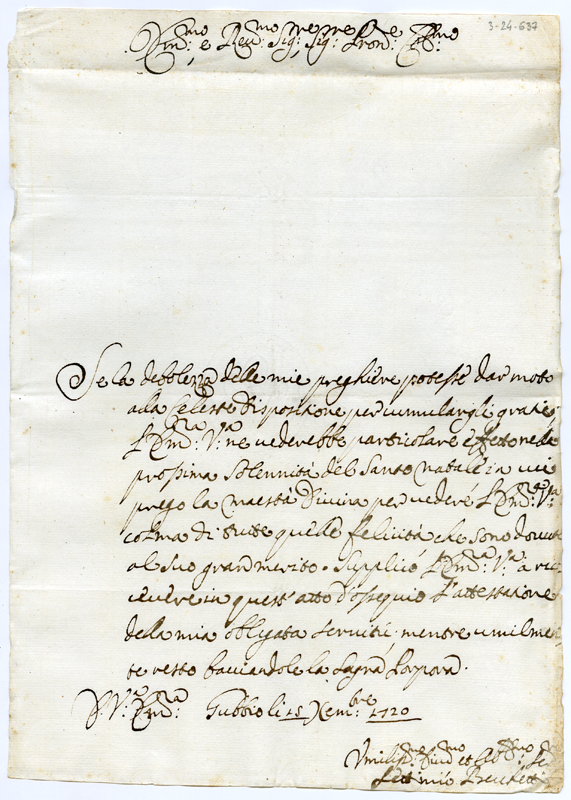 3-24-637
Em:mo e Rev:mo Sig:re Sig:re Pron:e Col:mo
Se la debolezza delle mie preghiere potesse dar moto
alla Celeste disposizione per cumulargli grazie,
L'Em:za V:ra ne vederebbe particolare effetto nella
prossima solennità del Santo natale in cui
prego la Maestà Divina per vedere L'Em:za V:ra
colma di tutte quelle felicità che sono dovute
al suo gran merito. Supplico L'Em:za V:ra a rice
vere in quest'atto d'ossequio l'attestazione
della mia obligata servitù mentre umilmen
te resto bacciandole la Sagra Porpora.
D. V:ra Em:za Gubbio li 15 Xembre 1720
Umiliss:mo Div:mo et Obb:mo Se